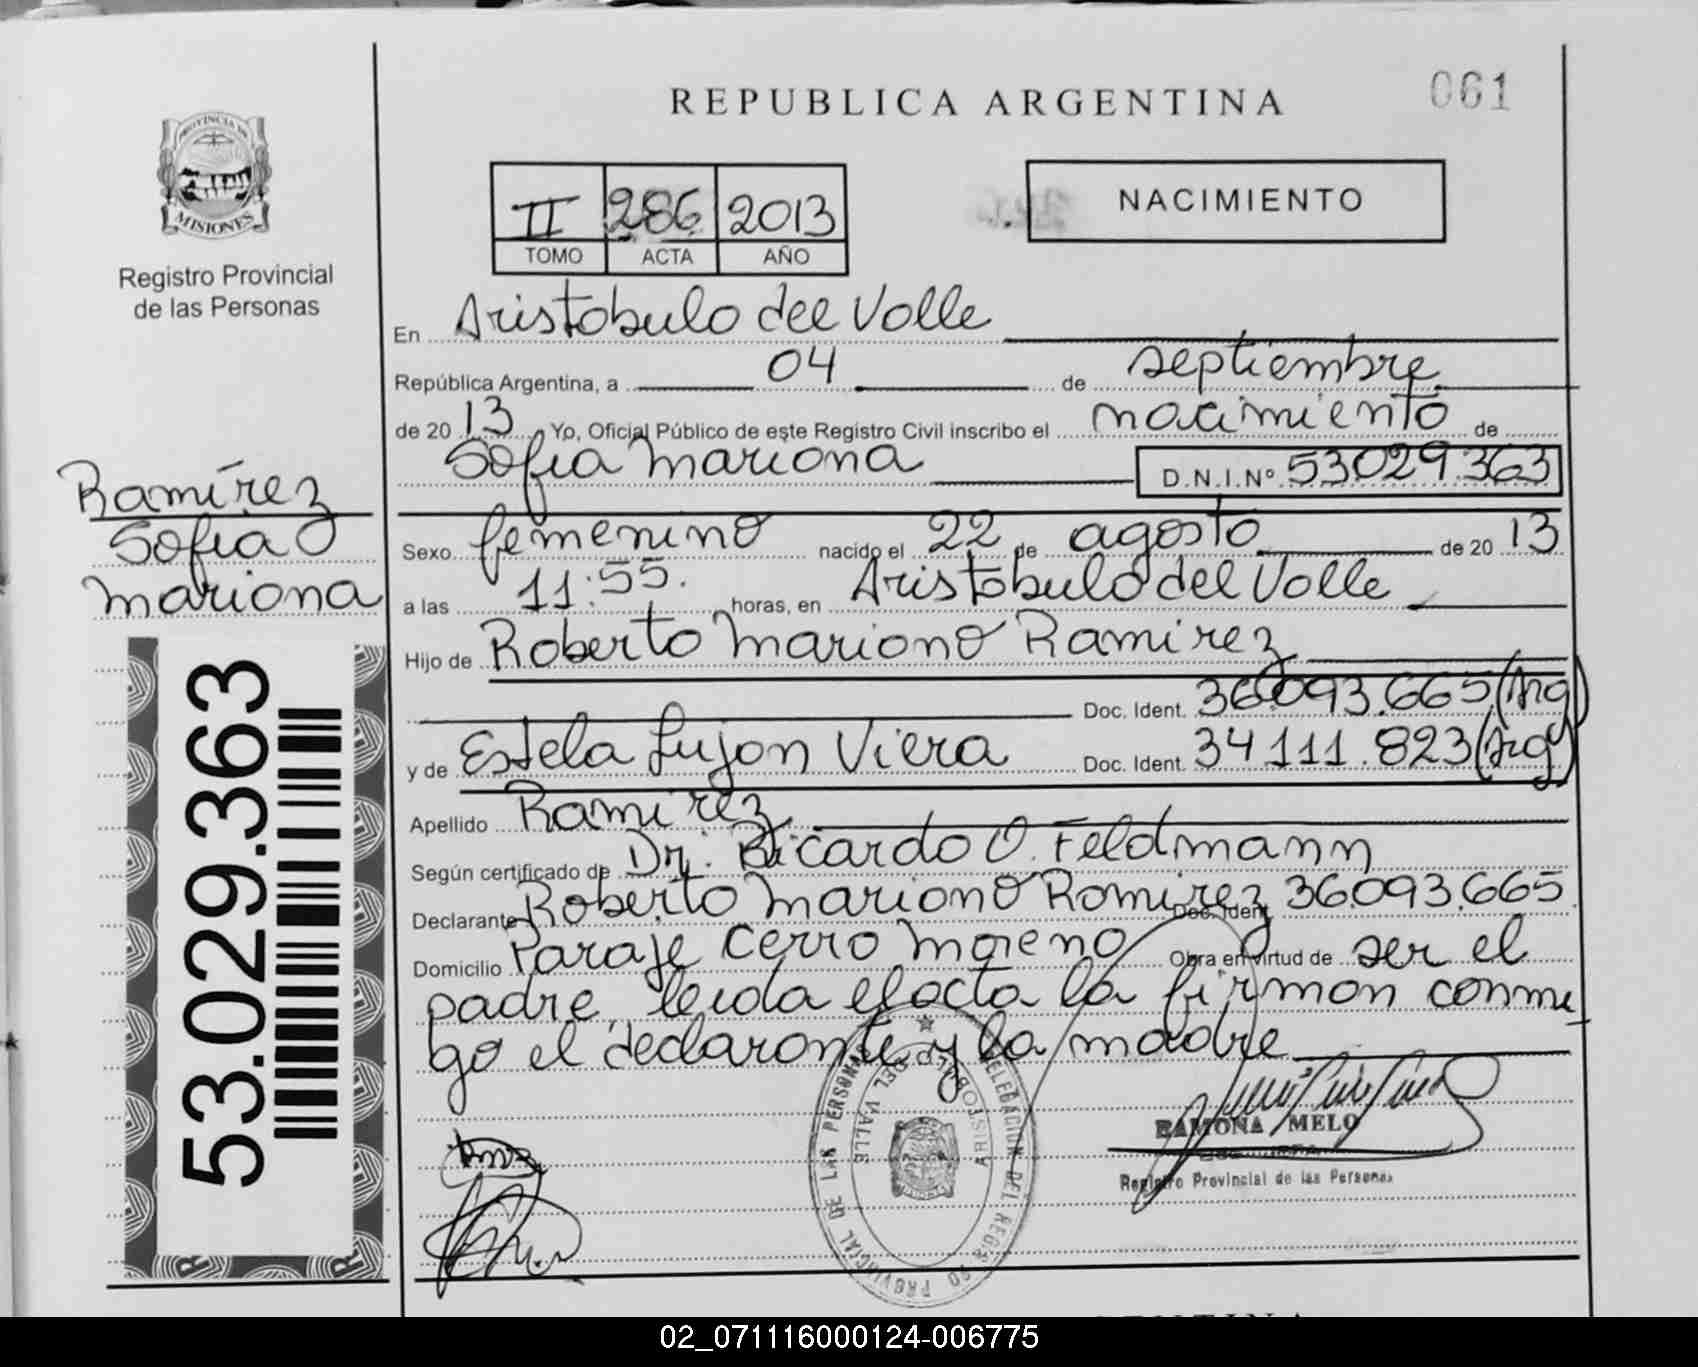 REPUBLICA ARGENTINA
061
PROVINCIA DE
MISIONES
Registro Provincial
de las Personas
II 286 2013
TOMO ACTA AÑO
NACIMIENTO
En Aristobulo del Valle
República Argentina, a 04 de septiembre
de 20 13 Yo, Oficial Público de este Registro Civil inscribo el nacimiento de
Sofia Mariana D.N.I.Nº 53029.363
Ramírez
Sofia
Mariana
Sexo femenino nacido el 22 de agosto de 20 13
a las 11:55. horas, en Aristobulo del Valle
Hijo de Roberto Mariano Ramirez
Doc. Ident. 36.093.665 (Arg)
y de Estela Lujan Viera Doc. Ident. 34 111.823 (Arg)
Apellido Ramirez
Según certificado de Dr. Ricardo O. Feldmann
Declarante Roberto Mariano Ramirez Doc. Ident. 36.093.665
Domicilio Paraje Cerro Moreno Obra en virtud de ser el
padre, leida el acta la firman conmi
go el declarante y la madre
53.029.363
DELEGACION DEL REGISTRO PROVINCIAL DE LAS PERSONAS
ARISTOBULO DEL VALLE
RAMONA MELO
Registro Provincial de las Personas
02_071116000124-006775